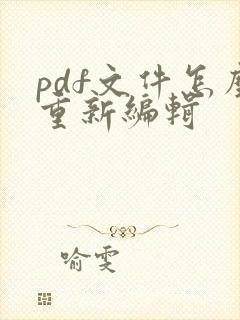 pdf文件怎麼
重新編輯
喻雯